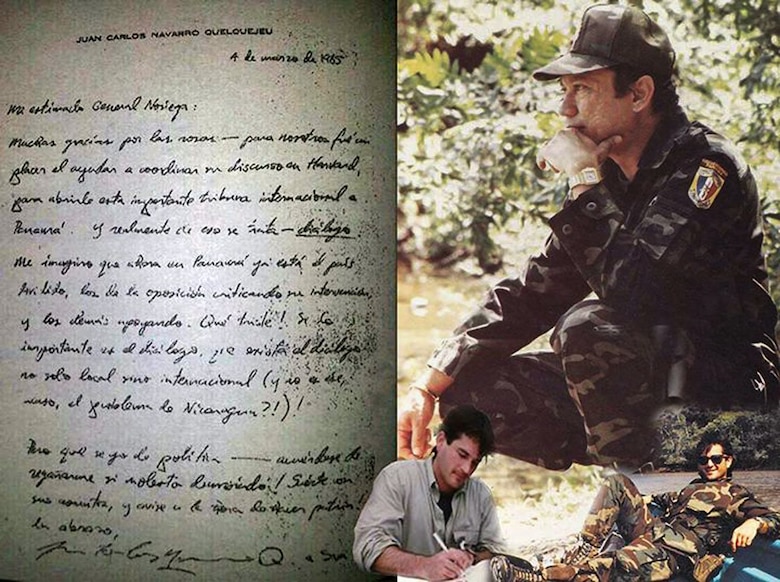 JUAN CARLOS NAVARRO QUELQUEJEU
4 de marzo de 1985
Mi estimado General Noriega:
Muchas gracias por las rosas — para nosotros fué un
placer el ayudar a coordinar su discurso en Harvard,
para abrirle esta importante tribuna internacional a
Panamá. Y realmente de eso se trata — diálogo.
Me imagino que ahora en Panamá ya está el país
dividido, los de la oposición criticando su intervención,
y los demás apoyando. Qué triste! Si lo
importante es el diálogo, que exista el diálogo
no solo local sino internacional (y
caso, el problema de Nicaragua?!)!
Pero que se yo de política — acuérdese de
regañarme si molesto demasiado! Suerte en
sus asuntos, y avise a la hora de hacer patria!
Un abrazo,